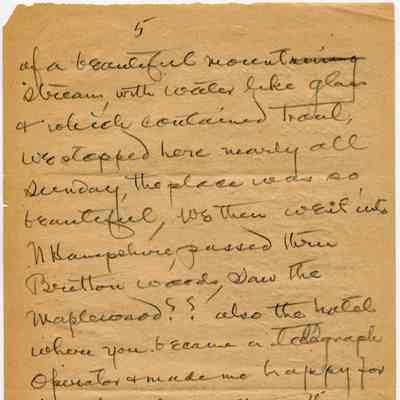 5
of a beautiful mountain
stream, with water like glass
& which contained Trout,
we stopped here nearly all
Sunday, the place was so
beautiful, We then went into
N Hampshire, passed thru
Bretton woods, Saw the
Maplewood?? also the hotel
where you became a Telegraph
Operator & made me happy for